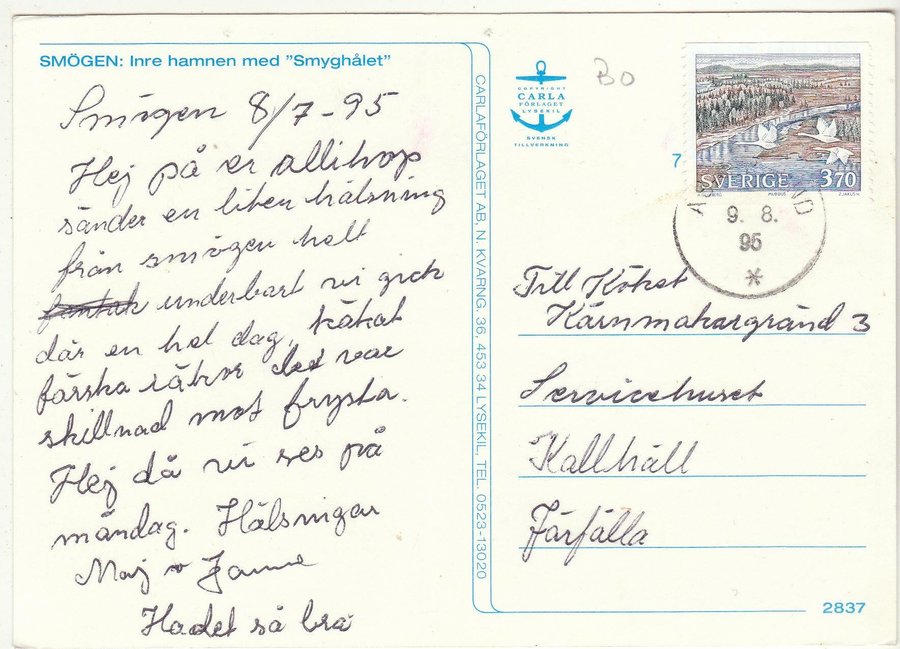 SMÖGEN: Inre hamnen med "Smyghålet"
Smögen 8/7-95
Hej på er allihop
sänder en liten hälsning
från smögen helt
underbart vi gick
där en hel dag, käkat
färska räkor det var
skillnad mot frysta.
Hej då vi ses på
måndag. Hälsningar
Maj o Janne
Hadet så bra
CARLAFÖRLAGET AB, N. KVARNG. 36, 453 34 LYSEKIL, TEL. 0523-13020
COPYRIGHT
CARLA
FÖRLAGET
LYSEKIL
SVENSK
TILLVERKNING
Bo
7
SVERIGE 370
9. 8.
95
*
Till Köket
Kärnmakargränd 3
Servicehuset
Kallhäll
Järfälla
2837